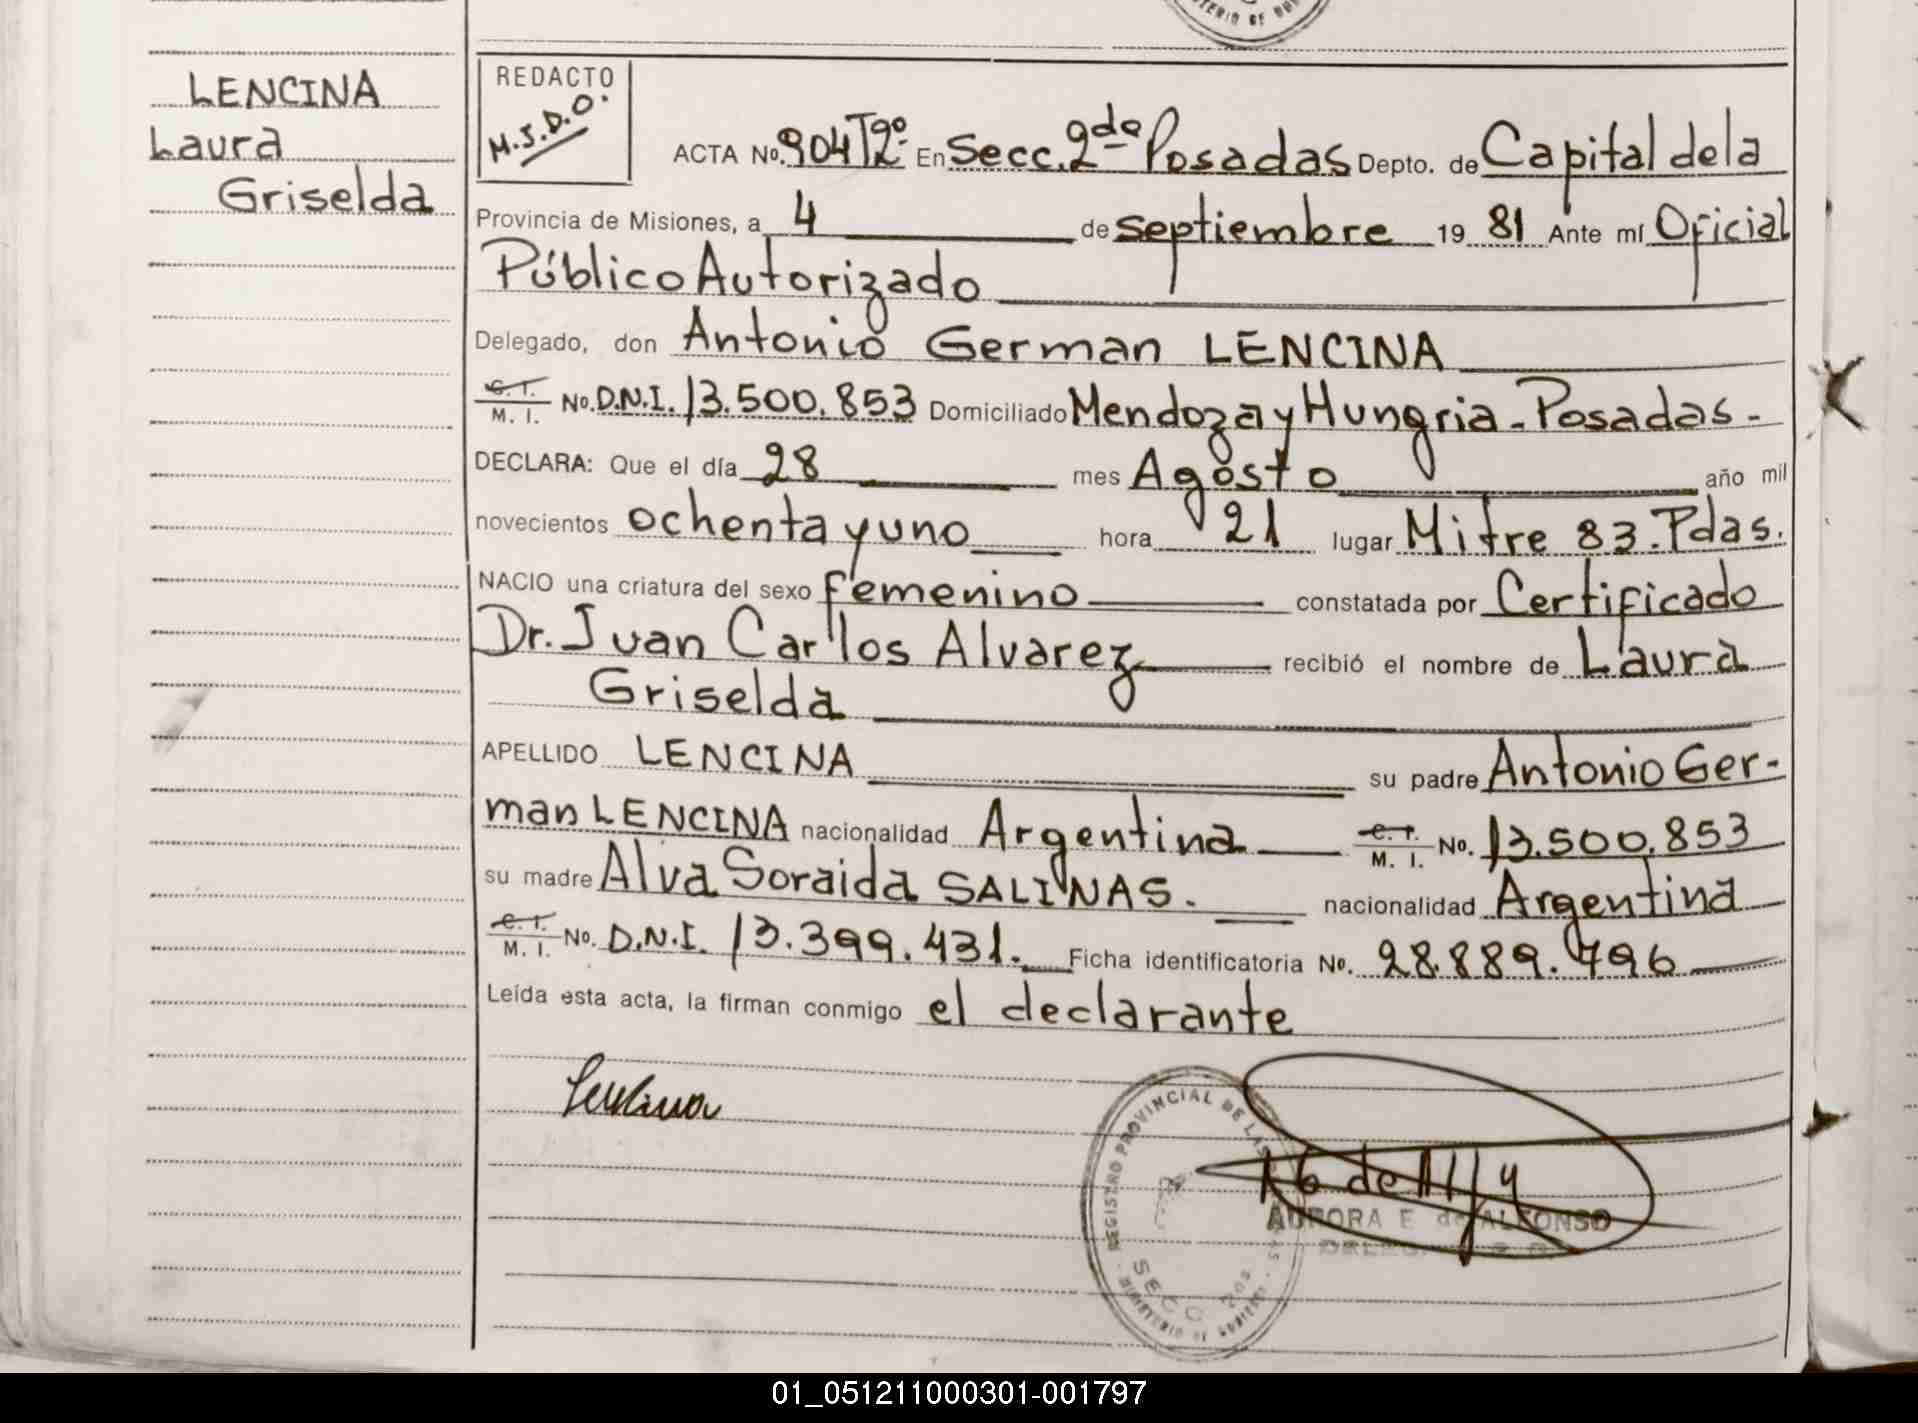 MINISTERIO DE
LENCINA
Laura
Griselda
REDACTO
M.J.D.O.
ACTA No. 904 Tº2º En Secc. 2da Posadas Depto. de Capital de la
Provincia de Misiones, a 4 de septiembre 19 81 Ante mí Oficial
Público Autorizado
Delegado, don Antonio German LENCINA
C. I. / M. I. No. D.N.I. 13.500.853 Domiciliado Mendoza y Hungria - Posadas -
DECLARA: Que el día 28 mes Agosto año mil
novecientos ochenta y uno hora 21 lugar Mitre 83. Pdas.
NACIO una criatura del sexo femenino constatada por Certificado
Dr. Juan Carlos Alvarez recibió el nombre de Laura
Griselda
APELLIDO LENCINA su padre Antonio Ger-
man LENCINA nacionalidad Argentina C. I. / M. I. No. 13.500.853
su madre Alva Soraida SALINAS. nacionalidad Argentina
C. I. / M. I. No. D.N.I. 13.399.431. Ficha identificatoria No. 28.889.796
Leída esta acta, la firman conmigo el declarante
Lencina
REGISTRO PROVINCIAL DE LAS
SECC. 2da POS
AURORA E. de ALFONSO
01_051211000301-001797